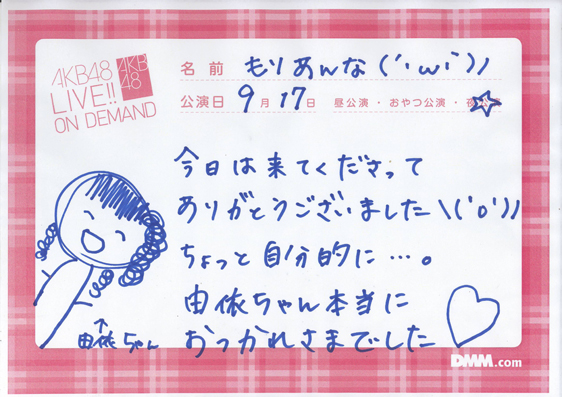 AKB48
LIVE!!
ON DEMAND
AKB
48
名前 もりあんな(´・ω・`)ﾉ
公演日 9月17日 昼公演・おやつ公演・夜公演
今日は来てくださって
ありがとうございました\('o')ﾉ
ちょっと自分的に…。
由依ちゃん本当に
おつかれさまでした
↑
由依ちゃん
DMM.com